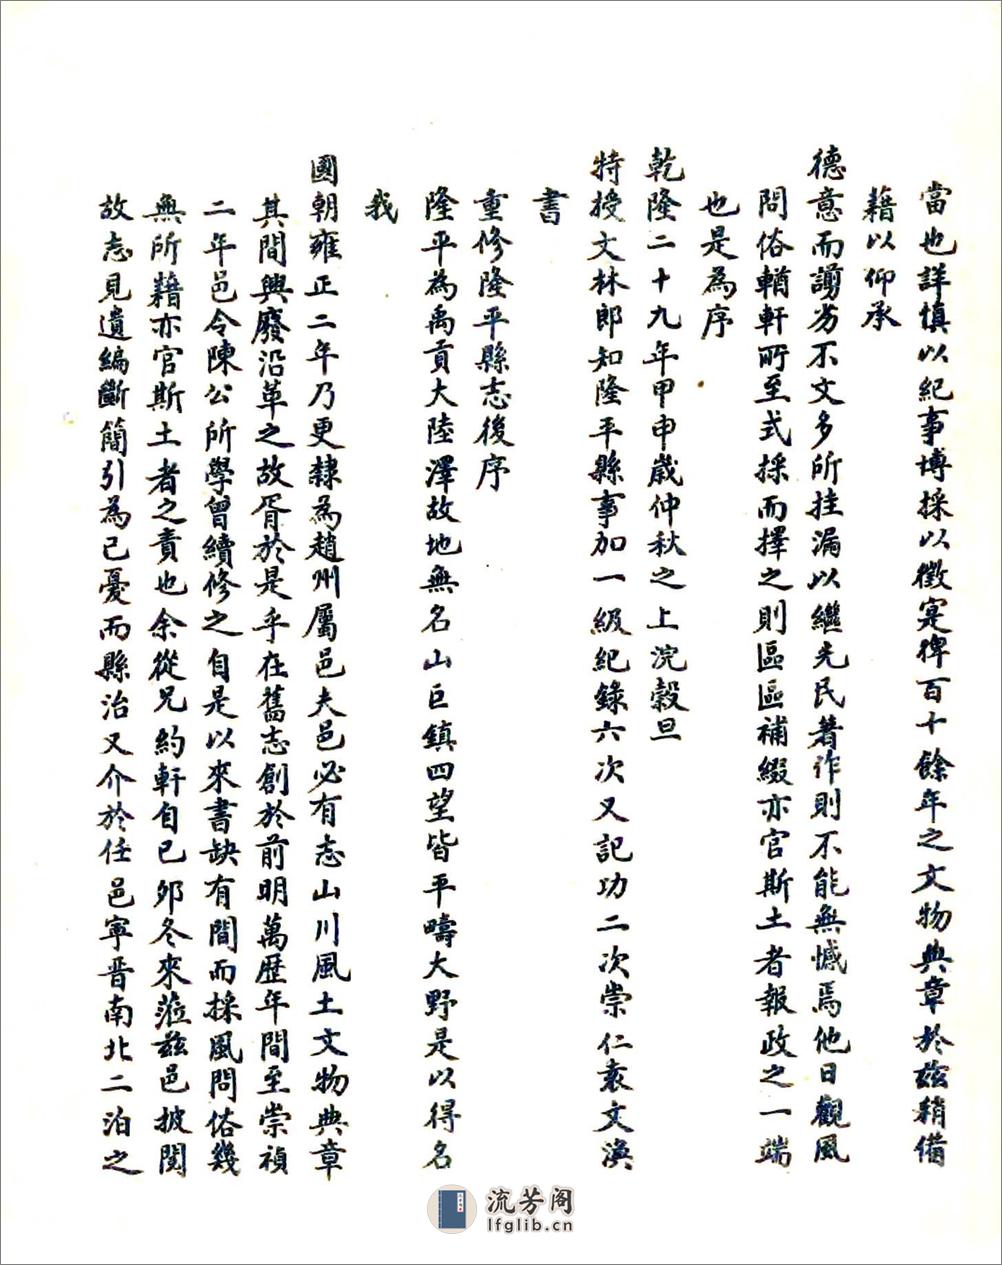 當也詳慎以紀事博採以徵寔俾百十餘年之文物典章於兹稍備
藉以仰承
德意而謭劣不文多所挂漏以繼先民著作則不能無憾焉他日觀風
問俗輶軒所至式採而擇之則區區補綴亦官斯土者報政之一端
也是為序
乾隆二十九年甲申歲仲秋之上浣榖旦
特授文林郎知隆平縣事加一級紀錄六次又記功二次崇仁袁文渙
書
重修隆平縣志後序
隆平為禹貢大陸澤故地無名山巨鎮四望皆平疇大野是以得名
我
國朝雍正二年乃更隸為趙州屬邑夫邑必有志山川風土文物典章
其間興廢沿革之故胥於是乎在舊志創於前明萬歷年間至崇禎
二年邑令陳公所學曾續修之自是以來書缺有間而採風問俗幾
無所藉亦官斯土者之責也余從兄約軒自己夘冬來蒞兹邑披閱
故志見遺編斷簡引為己憂而縣治又介於任邑寧晋南北二泊之
流芳阁
lfglib.cn